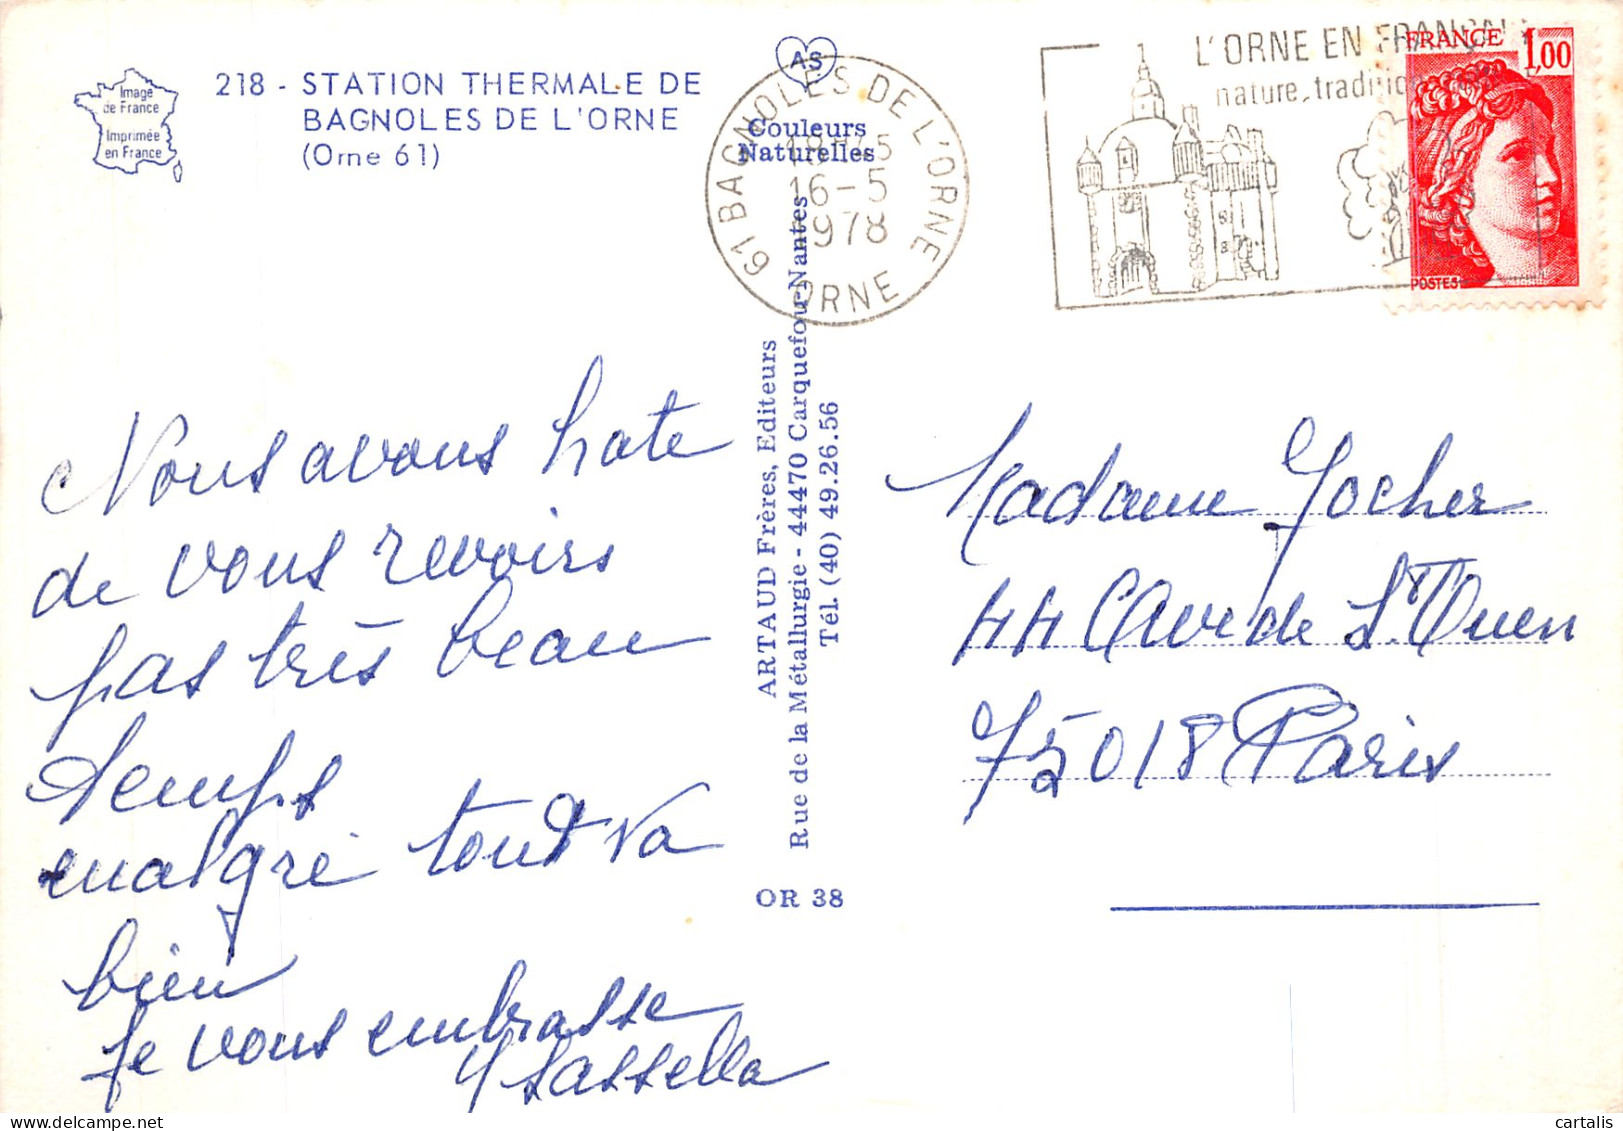 Image
de France
Imprimée
en France
218 - STATION THERMALE DE
BAGNOLES DE L'ORNE
(Orne 61)
AS
Couleurs
Naturelles
61 BAGNOLES DE L'ORNE
16-5
1978
ORNE
L'ORNE EN
nature, tradition
FRANCE 1,00
POSTES
Nous avons hate
de vous revoirs
pas très beau
temps
malgré tout va
bien
Je vous embrasse
ARTAUD Frères, Editeurs
Rue de la Métallurgie - 44470 Carquefou-Nantes
Tél. (40) 49.26.56
OR 38
Madame Jocher
44 Ave de St. Ouen
75018 Paris
cartalis sur delcampe.net